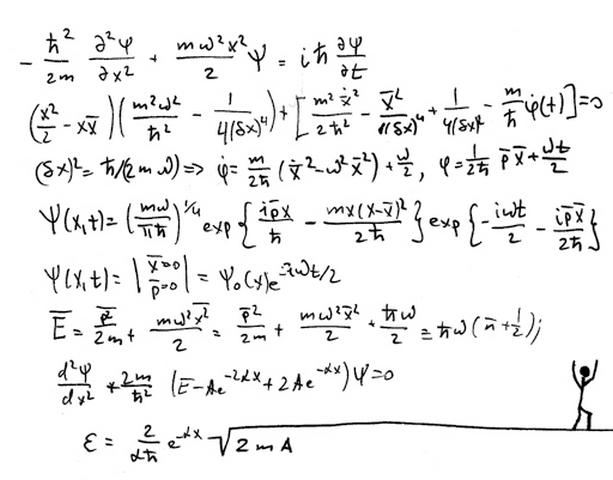 - ħ²/2m ∂²ψ/∂x² + mω²x²/2 ψ = iħ ∂ψ/∂t
(x²/2 - xx̄)(m²ω²/ħ² - 1/4(δx)⁴) + [m²ẋ̄²/2ħ² - x̄²/8(δx)⁴ + 1/4(δx)² - m/ħ φ̇(t)] = 0
(δx)² = ħ/(2mω) => φ̇ = m/2ħ (ẋ̄² - ω²x̄²) + ω/2, φ = 1/2ħ p̄x̄ + ωt/2
Ψ(x,t) = (mω/πħ)^1/4 exp{ip̄x/ħ - mx(x-x̄)²/2ħ} exp{-iωt/2 - ip̄x̄/2ħ}
Ψ(x,t) = |x̄=0 p̄=0| = Ψ₀(x)e^-iωt/2
Ē = p̄²/2m + mω²x̄²/2 = p̄²/2m + mω²x̄²/2 + ħω/2 ≡ ħω(n̄ + 1/2);
d²ψ/dx² + 2m/ħ² (E - Ae^-2αx + 2Ae^-αx)ψ = 0
ε = 2/αħ e^-αx √2mA